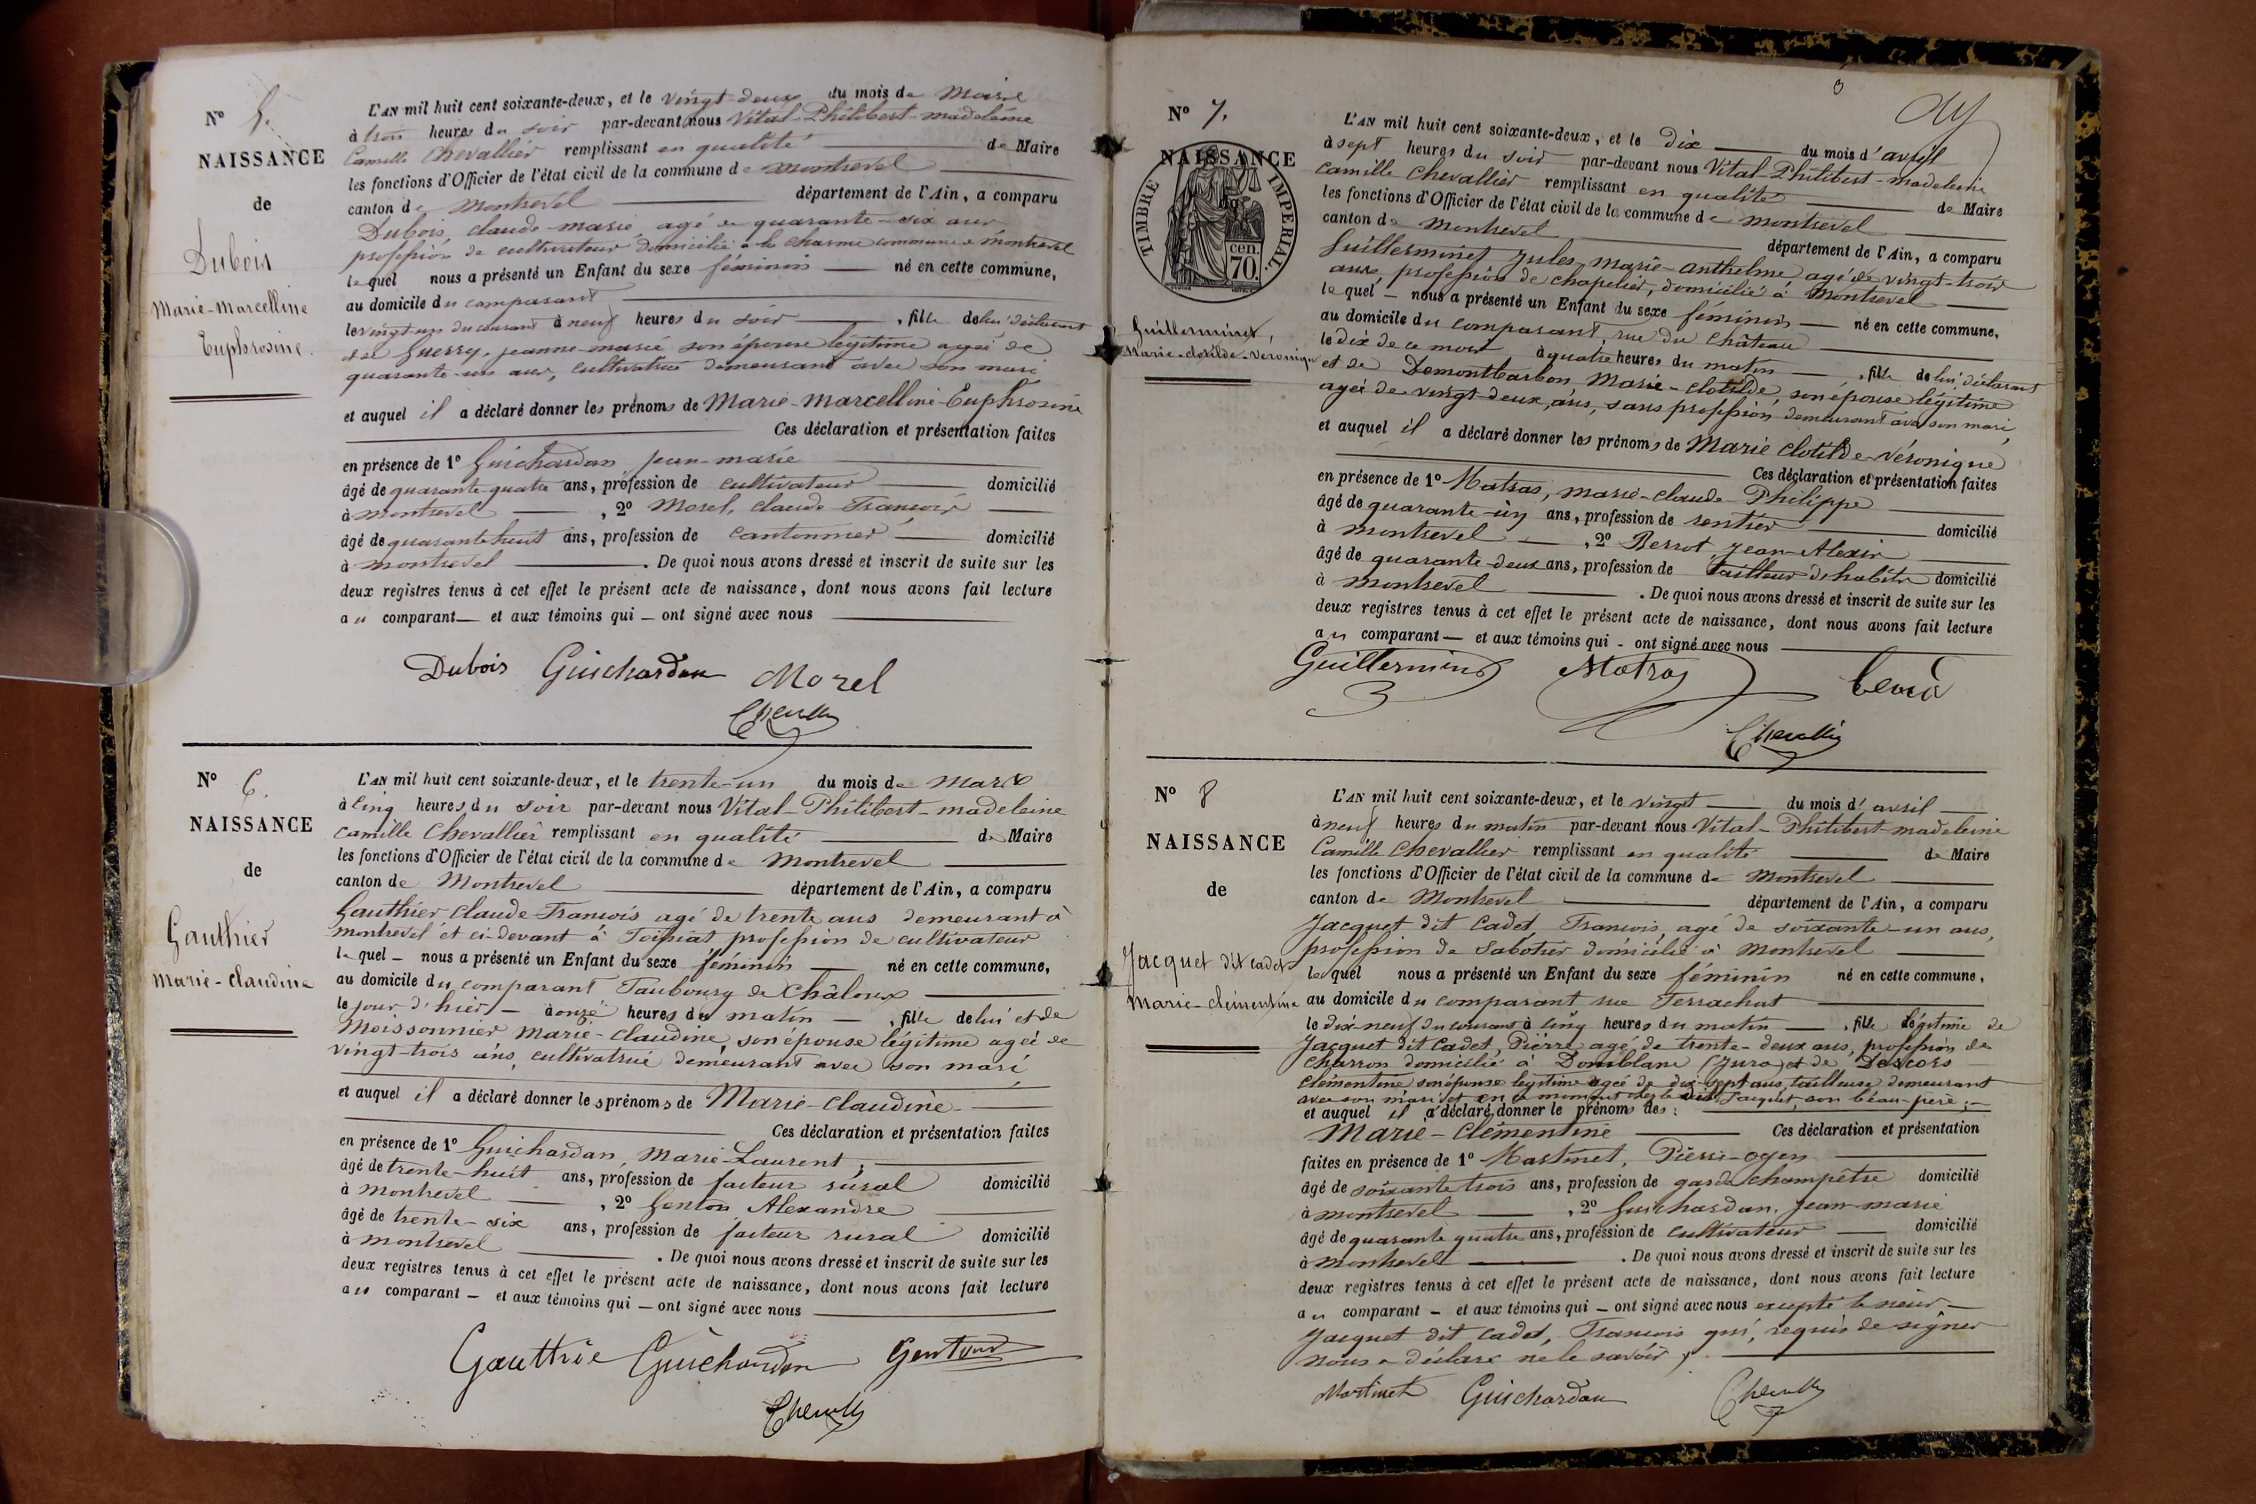 N° 5.
NAISSANCE
de
Dubois
Marie-Marcelline
Euphrosine.
L'AN mil huit cent soixante-deux, et le vingt-deux du mois de Mars
à trois heures du soir par-devant nous Vital-Philibert-madeleine
Camille Chevallier remplissant en qualité de Maire
les fonctions d'Officier de l'état civil de la commune de montrevel
canton de Montrevel département de l'Ain, a comparu
Dubois, claude-marie, agé de quarante-six ans
profession de cultivateur domicilié à la charme commune de montrevel
lequel nous a présenté un Enfant du sexe féminin né en cette commune,
au domicile du comparant
le vingt-un du courant à neuf heures du soir, fille de lui déclarant
et de Guerry, jeanne-marie son épouse légitime agée de
quarante-un ans, cultivatrice demeurant avec son mari
et auquel il a déclaré donner les prénoms de Marie-Marcelline-Euphrosine
Ces déclaration et présentation faites
en présence de 1° Guichardan jean-marie
âgé de quarante-quatre ans, profession de cultivateur domicilié
à montrevel, 2° Morel, claude-François
âgé de quarante huit ans, profession de cantonnier domicilié
à montrevel. De quoi nous avons dressé et inscrit de suite sur les
deux registres tenus à cet effet le présent acte de naissance, dont nous avons fait lecture
au comparant et aux témoins qui ont signé avec nous
Dubois Guichardan Morel
N° 6.
NAISSANCE
de
Gauthier
Marie-claudine
L'AN mil huit cent soixante-deux, et le trente-un du mois de Mars
à cinq heures du soir par-devant nous Vital-Philibert-madeleine
Camille Chevallier remplissant en qualité de Maire
les fonctions d'Officier de l'état civil de la commune de Montrevel
canton de Montrevel département de l'Ain, a comparu
Gauthier, claude-François agé de trente ans demeurant à
montrevel et ci-devant à profession de cultivateur
lequel nous a présenté un Enfant du sexe féminin né en cette commune,
au domicile du comparant Faubourg de Châlons
le jour d'hier à onze heures du matin, fille de lui et de
Moissonnier Marie-Claudine, son épouse légitime agée de
vingt-trois ans, cultivatrice demeurant avec son mari
et auquel il a déclaré donner les prénoms de Marie-Claudine
Ces déclaration et présentation faites
en présence de 1° Guichardan, Marie-Laurent,
âgé de trente-huit ans, profession de facteur rural domicilié
à montrevel, 2° Genton Alexandre
âgé de trente-six ans, profession de facteur rural domicilié
à montrevel. De quoi nous avons dressé et inscrit de suite sur les
deux registres tenus à cet effet le présent acte de naissance, dont nous avons fait lecture
au comparant et aux témoins qui ont signé avec nous
Guichardan
N° 7.
NAISSANCE
TIMBRE IMPERIAL.
cen.
70.
Guillerminet,
Marie-clotilde-veronique
L'AN mil huit cent soixante-deux, et le dix du mois d'avril
à sept heures du soir par-devant nous Vital-Philibert-madeleine
Camille Chevallier remplissant en qualité de Maire
les fonctions d'Officier de l'état civil de la commune de montrevel
canton de Montrevel département de l'Ain, a comparu
Guillerminet Jules-marie-anthelme agé de vingt-trois
ans, profession de chapelier, domicilié à Montrevel
lequel nous a présenté un Enfant du sexe féminin né en cette commune,
au domicile du comparant, rue du Château
le dix de ce mois à quatre heures du matin, fille de lui déclarant
et de Demontbarbon, Marie-Clotilde, son épouse légitime
agée de vingt-deux ans, sans profession demeurant avec son mari,
et auquel il a déclaré donner les prénoms de Marie Clotilde-Véronique
Ces déclaration et présentation faites
en présence de 1° Matras, marie-claude-Philippe
âgé de quarante-un ans, profession de rentier domicilié
à montrevel, 2° Jean-Alexis
âgé de quarante-deux ans, profession de tailleur d'habits domicilié
à montrevel. De quoi nous avons dressé et inscrit de suite sur les
deux registres tenus à cet effet le présent acte de naissance, dont nous avons fait lecture
au comparant et aux témoins qui ont signé avec nous
Matras
N° 8
NAISSANCE
de
Jacquet dit cadet
Marie-clémentine
L'AN mil huit cent soixante-deux, et le vingt du mois d'avril
à neuf heures du matin par-devant nous Vital-Philibert-madeleine
Camille Chevallier remplissant en qualité de Maire
les fonctions d'Officier de l'état civil de la commune de Montrevel
canton de Montrevel département de l'Ain, a comparu
Jacquet dit Cadet, François, agé de soixante-un ans,
profession de sabotier domicilié à Montrevel
lequel nous a présenté un Enfant du sexe féminin né en cette commune,
au domicile du comparant rue Ferrachat
le dix-neuf du courant à cinq heures du matin, fille légitime de
Jacquet dit Cadet, Pierre, agé de trente-deux ans, profession de
charron domicilié à Domblans (Jura) et de
Clémentine son épouse légitime agée de dix-sept ans, tailleuse demeurant
avec son mari et en ce moment chez le dit Jacquet, son beau-père;
et auquel il a déclaré donner le prénom de:
Marie-Clémentine Ces déclaration et présentation
faites en présence de 1° Martinet, Pierre-
âgé de soixante trois ans, profession de garde champêtre domicilié
à montrevel, 2° Guichardan, Jean-marie
âgé de quarante quatre ans, profession de cultivateur domicilié
à montrevel. De quoi nous avons dressé et inscrit de suite sur les
deux registres tenus à cet effet le présent acte de naissance, dont nous avons fait lecture
au comparant et aux témoins qui ont signé avec nous excepté le sieur
Jacquet dit cadet, François qui, requis de signer
nous a déclaré ne le savoir
Martinet Guichardan